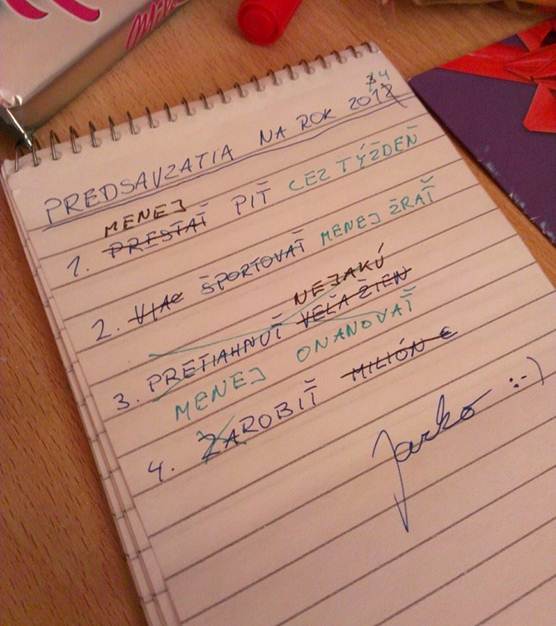 34
PREDSAVZATIA NA ROK 2012
MENEJ
1. PRESTAŤ PIŤ CEZ TÝŽDEŇ
2. VIAC ŠPORTOVAŤ MENEJ ŽRAŤ
NEJAKÚ
3. PRETIAHNUŤ VEĽA ŽIEN
MENEJ ONANOVAŤ
4. ZAROBIŤ MILIÓN €
Jarko :-)